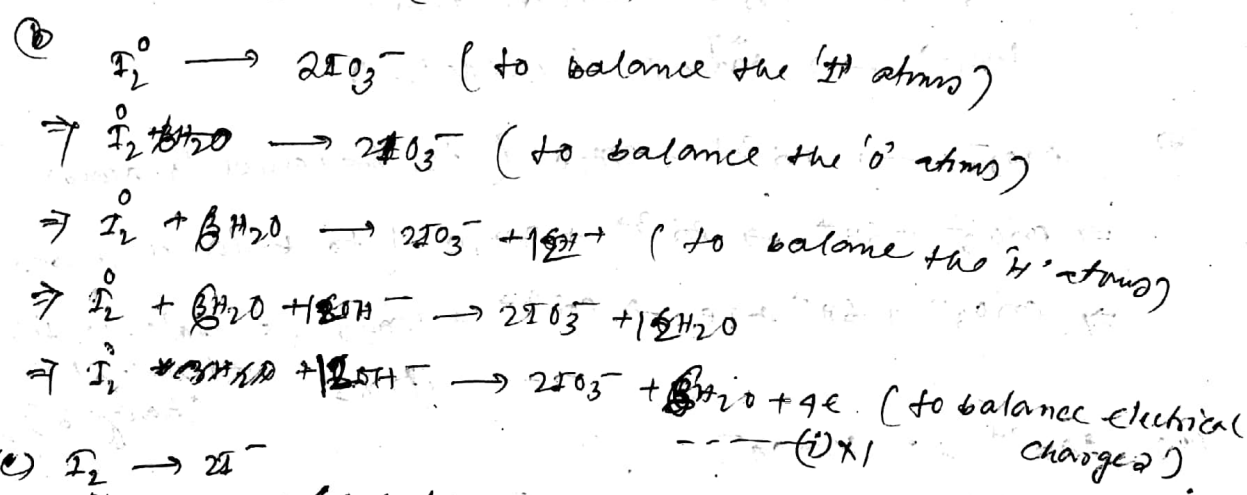 (b) I₂⁰ ⟶ 2IO₃⁻ ( to balance the 'I' atoms)
⇒ I₂⁰ ⟶ 2IO₃⁻ ( to balance the 'O' atoms)
⇒ I₂⁰ + 6H₂O ⟶ 2IO₃⁻ +12H⁺ ( to balance the 'H' atoms)
⇒ I₂⁰ + 6H₂O +12OH⁻ ⟶ 2IO₃⁻ +12H₂O
⇒ I₂⁰ +12OH⁻ ⟶ 2IO₃⁻ + 6H₂O + 4e. ( to balance electrical
------(i)×1 charges).
I₂ ⟶ 2I⁻